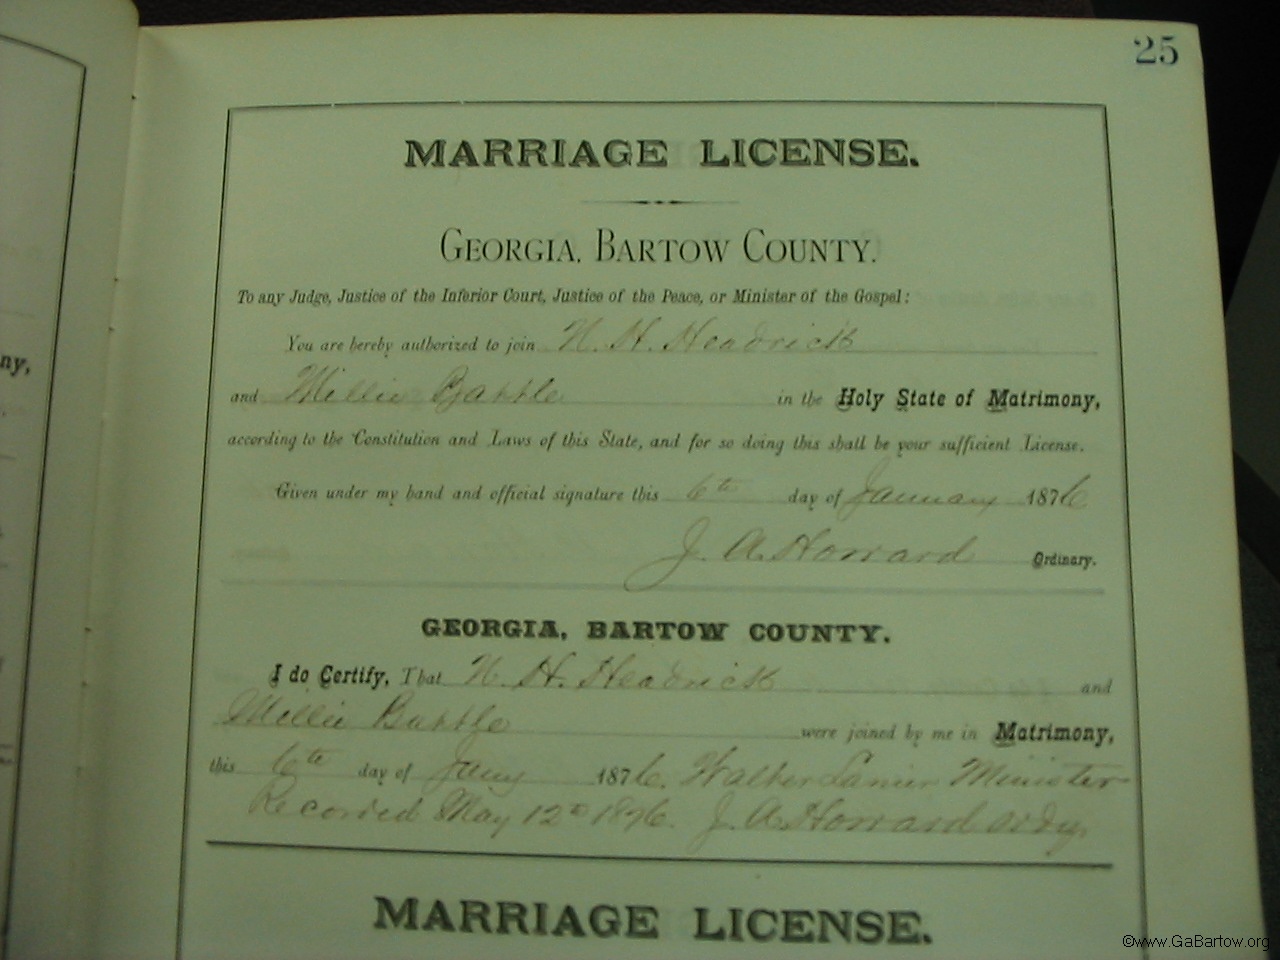 25
MARRIAGE LICENSE.
GEORGIA, BARTOW COUNTY.
To any Judge, Justice of the Inferior Court, Justice of the Peace, or Minister of the Gospel:
You are hereby authorized to join H. Headrick
and Millie Battle in the Holy State of Matrimony,
according to the Constitution and Laws of this State, and for so doing this shall be your sufficient License.
Given under my hand and official signature this 6th day of January 1876
J. A. Howard Ordinary.
GEORGIA, BARTOW COUNTY.
I do Certify, That H. Headrick and
Millie Battle were joined by me in Matrimony,
this 6th day of Jany 1876. Walker Lanier Minister
Recorded May 12 1876. J. A. Howard Ordy.
MARRIAGE LICENSE.
ny,
©www.GaBartow.org